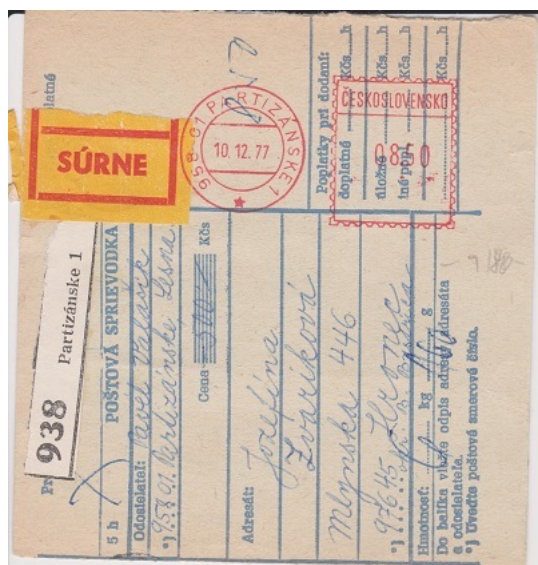 SÚRNE
958 01 PARTIZÁNSKE 1
10.12.77
ČESKOSLOVENSKO
Poplatky pri dodaní:
doplatné Kčs h
úložné Kčs h
iné popl. Kčs h
938 Partizánske 1
5 h POŠTOVÁ SPRIEVODKA
Odosielateľ: Pavel Valašík
*) 958 01 Partizánske Lesná
Cena Kčs
Adresát: Jozefína
Zvaríková
Mlynská 446
*) 976 45 Hronec
Hmotnosť: kg g
Do balíka vložte odpis adresy adresáta
a odosielateľa.
*) Uveďte poštové smerové číslo.